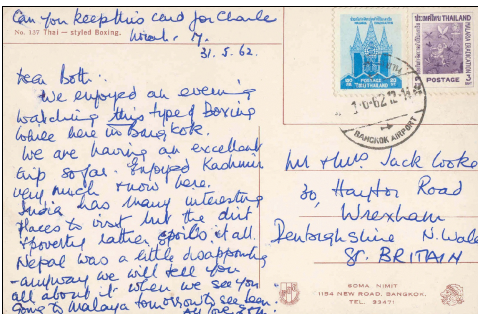 Can you keep this card for Charle
No. 137 Thai — styled Boxing.
31.5.62.
Dear Both:.
We enjoyed an evening
watching this type of Boxing
while here in Bangkok.
We are having an excellent
trip so far. Enjoyed Kashmir
very much & now here.
India has many interesting
places to visit but the dirt
& poverty rather spoils it all.
Nepal was a little disappointing
- anyway we will tell you
all about it when we see you
Going to Malaya tomorrow to see
All love
ประเทศไทย THAILAND
MALARIA ERADICATION
POSTAGE
POSTAGE
ประเทศไทย THAILAND
1.6.62
BANGKOK AIRPORT
Mr & Mrs Jack Cooke
30, Haytor Road
Wrexham
Denbighshire N. Wale
GT. BRITAIN
SOMA NIMIT
1154 NEW ROAD, BANGKOK.
TEL. 33471